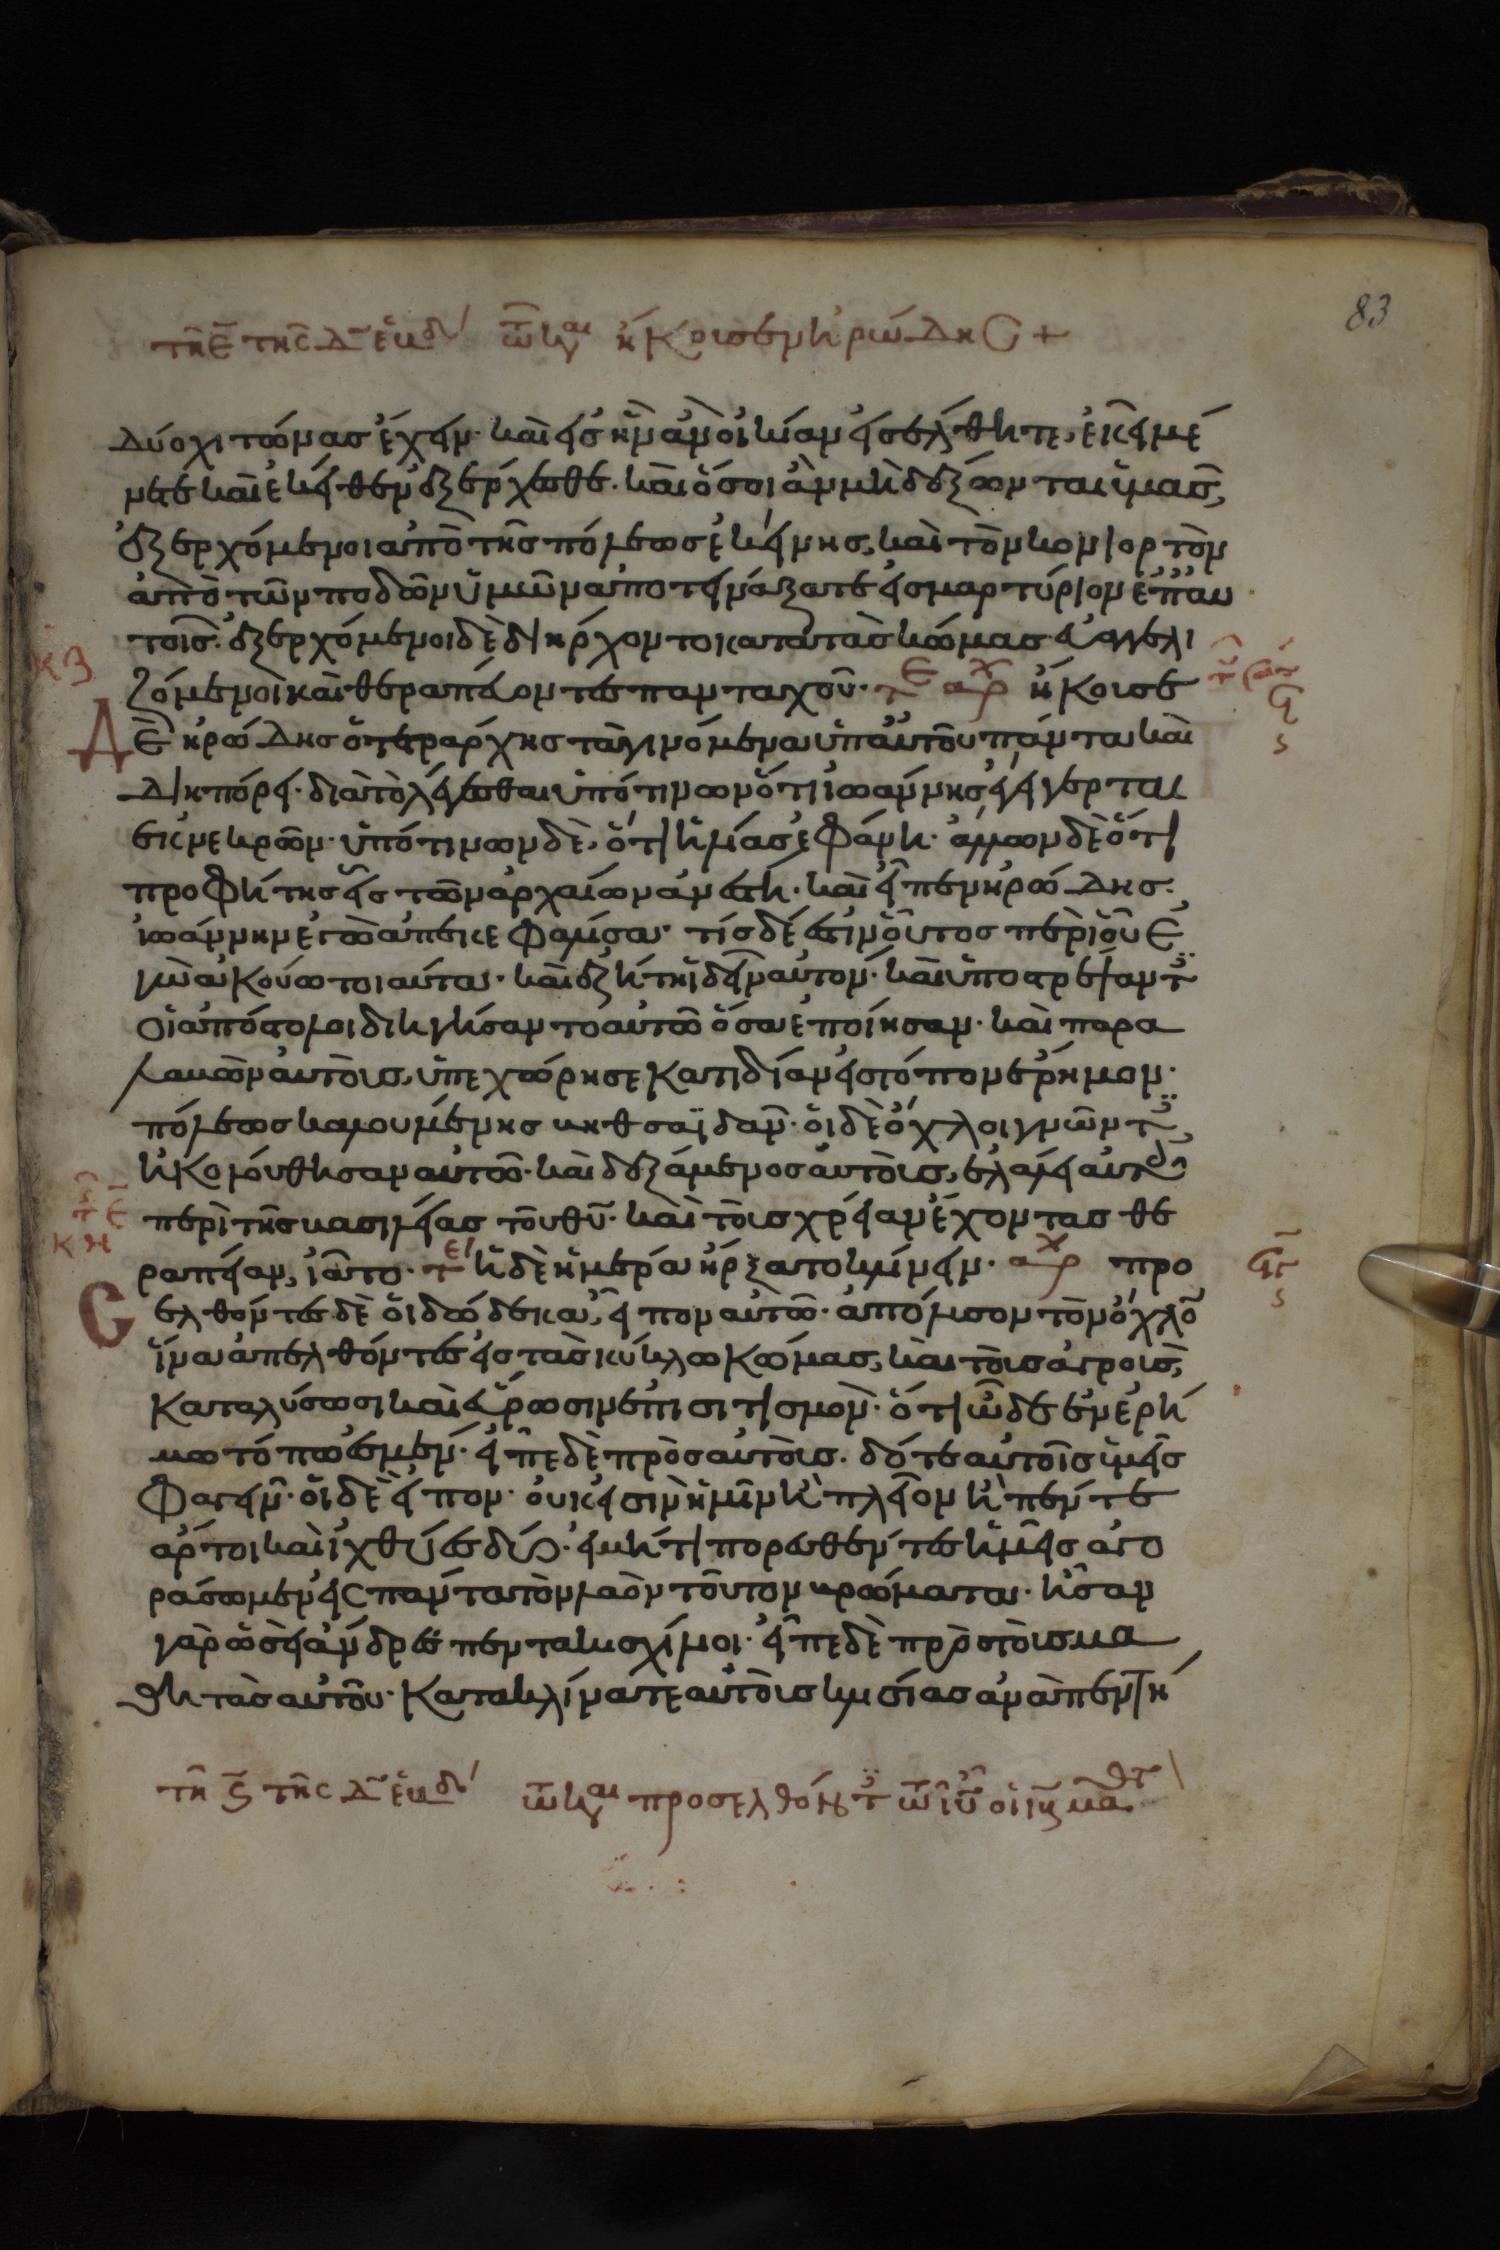 83
τῆ ε̄ τῆς δ̄ ἑβδ τῶ κ̄αι ἤκουσεν ἡρώδης +
δύο χιτῶνας ἔχειν· καὶ εἰς ἣν ἂν οἰκίαν εἰσέλθητε, ἐκεῖ μέ
νετε καὶ ἐκεῖθεν ἐξέρχεσθε. καὶ ὅσοι ἂν μὴ δέξωνται ὑμᾶς,
ἐξερχόμενοι ἀπὸ τῆς πόλεως ἐκείνης, καὶ τὸν κονιορτὸν
ἀπὸ τῶν ποδῶν ὑμῶν ἀποτινάξατε εἰς μαρτύριον ἐπ' αυ
τοῖς. ἐξερχόμενοι δὲ διήρχοντο κατὰ τὰς κώμας εὐαγγελι
ζόμενοι καὶ θεραπεύοντες πανταχοῦ· τε αρχ ἤκουσε
κβ
Δὲ ἡρώδης ὁ τετράρχης τὰ γινόμενα ὑπ' αὐτοῦ πάντα καὶ
διηπόρει· διὰ τὸ λέγεσθαι ὑπό τινων ὅτι ἰωάννης ἐγήγερται
ἐκ νεκρῶν· ὑπό τινων δὲ, ὅτι ἠλίας ἐφάνη· ἄλλων δὲ ὅτι
προφήτης εἷς τῶν ἀρχαίων ἀνέστη· καὶ εἶπεν ἡρώδης·
ἰωάννην ἐγὼ ἀπεκεφάλισα· τίς δέ ἐστιν οὗτος περὶ οὗ ἐ
γὼ ἀκούω τοιαῦτα· καὶ ἐζήτει ἰδεῖν αὐτόν· καὶ ὑποστρέψαντ
οἱ ἀπόστολοι διηγήσαντο αὐτῶ ὅσα ἐποίησαν· καὶ παρα
λαβὼν αὐτοὺς, ὑπεχώρησε κατιδίαν εἰς τόπον ἔρημον·
πόλεως καλουμένης βηθσαϊδάν· οἱ δὲ ὄχλοι γνῶντ
ἠκολούθησαν αὐτῶ· καὶ δεξάμενος αὐτοὺς, ἐλάλει αὐτ
περὶ τῆς βασιλείας τοῦ θῦ· καὶ τοὺς χρείαν ἔχοντας θε
κη
ραπείαν, ἰᾶτο· τε ἡ δὲ ἡμέρα ἤρξατο κλίνειν· αρχ προ
σελθόντες δὲ οἱ δώδεκα, εἶπον αὐτῶ· ἀπόλυσον τὸν ὄχλο
ἵνα ἀπελθόντες εἰς τὰς κύκλω κώμας, καὶ τοὺς ἀγροὺς,
καταλύσωσι καὶ εὕρωσιν ἐπισιτισμόν· ὅτι ὧδε ἐν ἐρή
μω τόπω ἐσμέν· εἶπε δὲ πρὸς αὐτοὺς· δότε αὐτοῖς ὑμεῖς
φαγεῖν· οἱ δὲ εἶπον· οὐκ εἰσὶν ἡμῖν ἢ πλεῖον ἢ πέντε
ἄρτοι καὶ ἰχθύες δύο· εἰ μή τι πορευθέντες ἡμεῖς ἀγο
ράσωμεν εἰς πάντα τὸν λαὸν τοῦτον βρώματα· ἦσαν
γὰρ ὡσεὶ ἄνδρες πεντακισχίλιοι· εἶπε δὲ πρὸς τοὺς μα
θητὰς αὐτοῦ· κατακλίνατε αὐτοὺς κλισίας ἀνὰ πεντή
τῆ ς̄ τῆς δ̄ ἑβδ τῶ κ̄αι προσελθόντ τῶ ἰῦ οἱ ιβ μαθτ